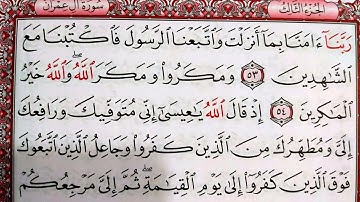 الجزء الثالث سورة آل عمران
رَبَّنَآ ءَامَنَّا بِمَآ أَنزَلْتَ وَٱتَّبَعْنَا ٱلرَّسُولَ فَٱكْتُبْنَا مَعَ
ٱلشَّٰهِدِينَ ٥٣ وَمَكَرُوا۟ وَمَكَرَ ٱللَّهُ وَٱللَّهُ خَيْرُ
ٱلْمَٰكِرِينَ ٥٤ إِذْ قَالَ ٱللَّهُ يَٰعِيسَىٰٓ إِنِّى مُتَوَفِّيكَ وَرَافِعُكَ
إِلَىَّ وَمُطَهِّرُكَ مِنَ ٱلَّذِينَ كَفَرُوا۟ وَجَاعِلُ ٱلَّذِينَ ٱتَّبَعُوكَ
فَوْقَ ٱلَّذِينَ كَفَرُوٓا۟ إِلَىٰ يَوْمِ ٱلْقِيَٰمَةِ ۖ ثُمَّ إِلَىَّ مَرْجِعُكُمْ